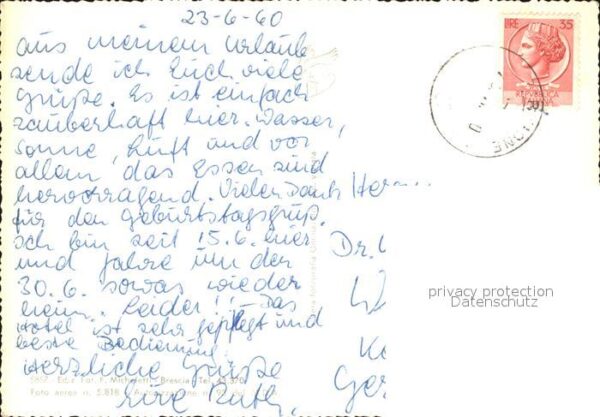 23-6-60
aus meinem Urlaub
sende ich Euch viele
Grüße. Es ist einfach
zauberhaft hier. Wasser,
Sonne, Luft und vor
allem das Essen sind
hervorragend. Vielen Dank
für den Geburtstagsgruß.
Ich bin seit 15.6. hier
und fahre um den
30.6. sowas wieder
heim. Leider!! - Das
Hotel ist sehr gepflegt und
beste Bedienung.
Herzliche Grüße
Eure Ruth
Herrn
Dr.
Ger
LIRE 35
REPVBBLICA
privacy protection
Datenschutz
Edit. Fot. F. Micheletti, Brescia - Tel.
Foto aerea n. 5.818